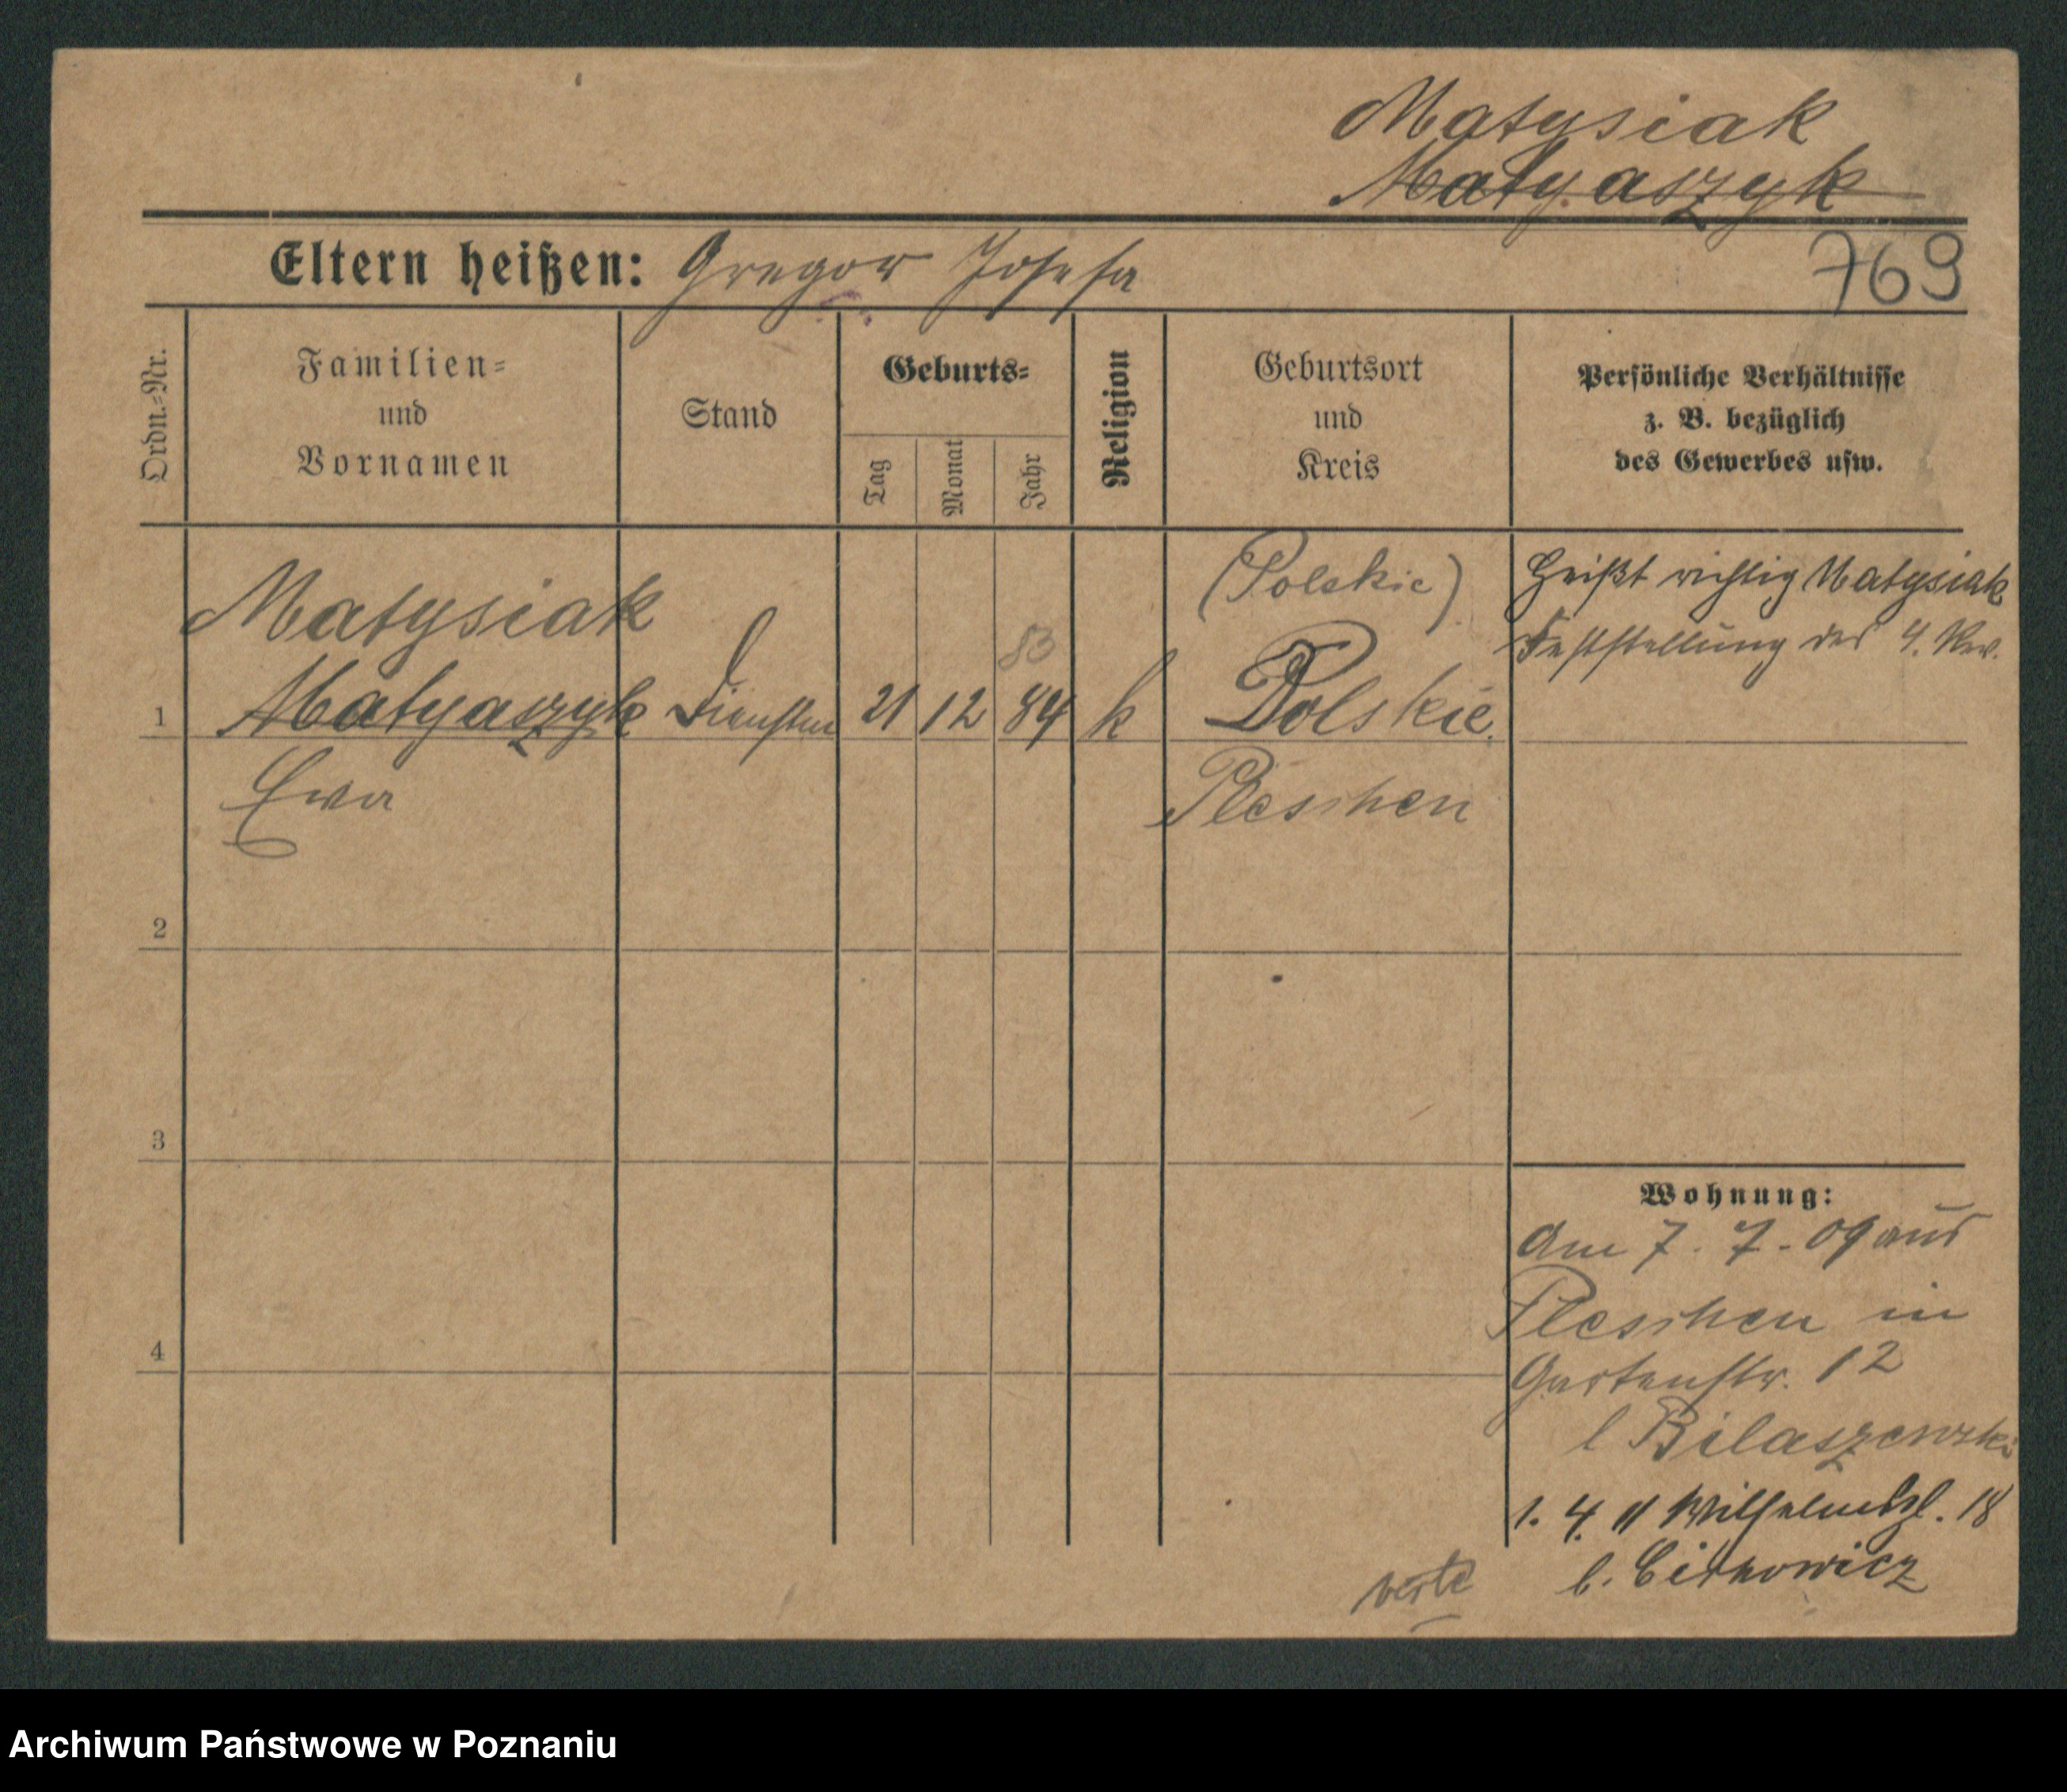 Matysiak
Matyaszyk
Eltern heißen: Gregor Josefa
769
Ordn.=Nr.
Familien=
und
Vornamen
Stand
Geburts=
Tag
Monat
Jahr
Religion
Geburtsort
und
Kreis
Persönliche Verhältnisse
z. B. bezüglich
des Gewerbes usw.
Matysiak
(Polskie)
Heißt richtig Matysiak
Feststellung des 4. Rev.
83
1 Matyaszyk 21 12 84 k Polskie.
Ewa
Pleschen
2
3
4
Wohnung:
Am 7. 7. 09 aus
Pleschen in
Gartenstr. 12
Bilaszewski
1. 4. 11 Wilhelmspl. 18
b. Citkowicz
verte
Archiwum Państwowe w Poznaniu